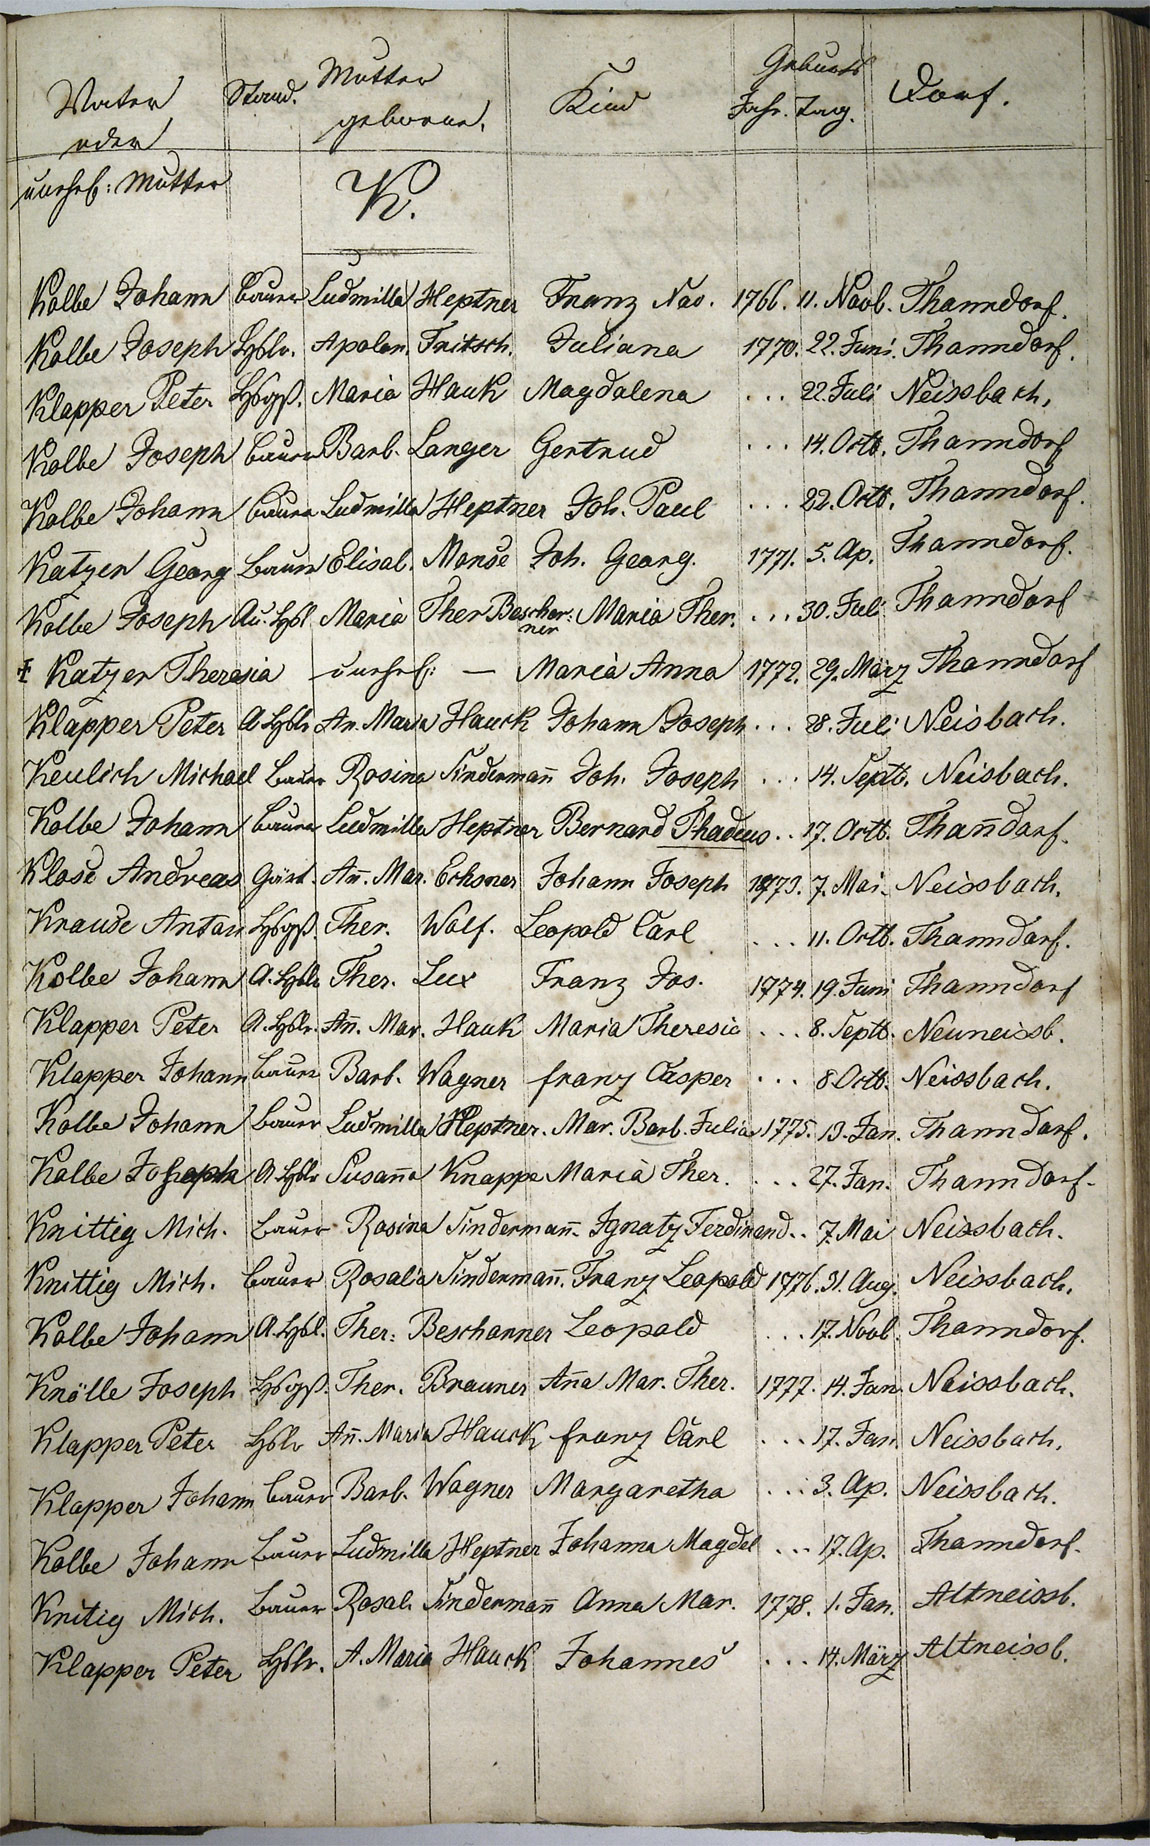 Vater Stand. Mutter Kind Geburts Dorf.
oder geborene. Jahr. Tag.
unehel: Mutter K.
Kolbe Johann Bauer Ludmilla Heptner Franz Xav. 1766. 11. Novb. Thanndorf.
Kolbe Joseph Hßlr. Apolon. Fritsch. Juliana 1770. 22. Juni. Thanndorf.
Klapper Peter Hßgß. Maria Hauk Magdalena ... 22. Juli Neissbach,
Kolbe Joseph Bauer Barb. Langer Gertrud ... 14. Octb. Thanndorf
Kolbe Johann Bauer Ludmilla Heptner Joh. Paul ... 22. Octb. Thanndorf.
Katzer Georg Bauer Elisab. Monse Joh. Georg. 1771. 5. Ap. Thanndorf.
Kolbe Joseph Au. Hßl Maria Ther Beschor: Maria Ther. ... 30. Juli Thanndorf
ner
Katzer Theresia unehel: — Maria Anna 1772. 29. März Thanndorf
Klapper Peter A. Hßlr An. Maria Hauck Johann Joseph ... 28. Juli Neisbach.
Keulich Michael Bauer Rosina Sindermañ Joh. Joseph ... 14. Septb. Neisbach.
Kolbe Johann Bauer Ludmilla Heptner Bernard Thadeus .. 17. Octb. Thañdorf.
Klose Andreas Gärt. Añ. Mar. Echsner Johann Joseph 1773. 7. Mai. Neissbach.
Krause Anton Hßgß. Ther. Wolf. Leopold Carl ... 11. Octb. Thanndorf.
Kolbe Johann A. Hßlr Ther. Lux Franz Jos. 1774. 19. Juni Thanndorf
Klapper Peter A. Hßlr. Añ. Mar. Hauk Maria Theresia ... 8. Septb. Neuneissb.
Klapper Johann Bauer Barb. Wagner franz Casper ... 8 Octb. Neissbach.
Kolbe Johann Bauer Ludmilla Heptner. Mar. Barb. Julia 1775. 13. Jan. Thanndorf.
Kolbe Joseph A. Hßlr Susaña Knappe Maria Ther. ... 27. Jan. Thanndorf.
Knittig Mich. Bauer Rosina Sindermañ. Ignatz Ferdinand.. 7. Mai Neissbach.
Knittig Mich. Bauer Rosalia Sindermañ. Franz Leopold 1776. 31. Aug. Neissbach.
Kolbe Johann A. Hßl. Ther: Beschorner Leopold ... 17. Novb. Thanndorf.
Knölle Joseph Hßgß. Ther. Brauner Aña Mar. Ther. 1777. 14. Jan. Neissbach.
Klapper Peter Hßlr Añ. Maria Hauck franz Carl ... 17. Jan. Neissbach.
Klapper Johann Bauer Barb. Wagner Margaretha ... 3. Ap. Neissbach.
Kolbe Johann Bauer Ludmilla Heptner Johanna Magdal ... 17. Ap. Thanndorf.
Knitig Mich. Bauer Rosal. Sindermañ Anna Mar. 1778. 1. Jan. Altneissb.
Klapper Peter Hßlr. A. Maria Hauck Johannes ... 14. März Altneissb.